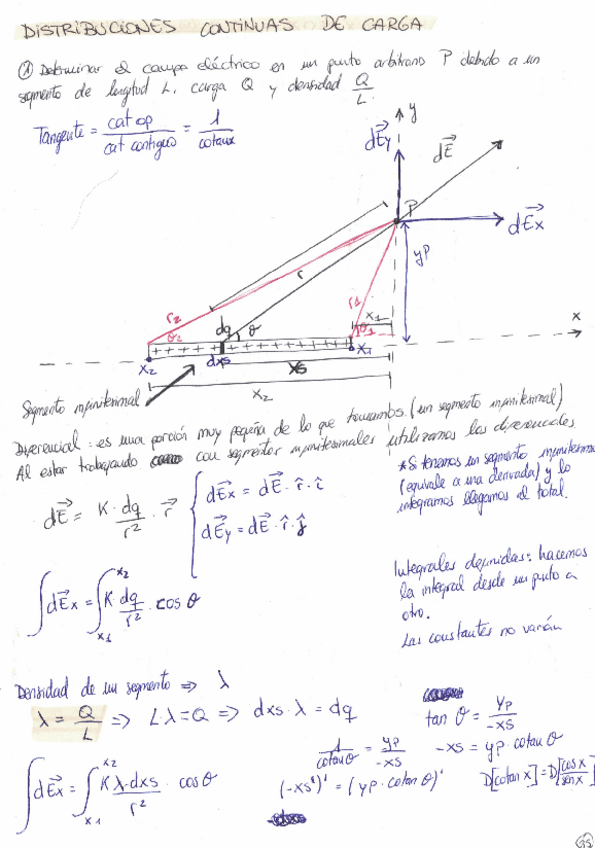 DISTRIBUCIONES CONTINUAS DE CARGA
① Determinar el campo eléctrico en un punto arbitrario P debido a un
segmento de longitud L, carga Q y densidad Q/L.
Tangente = cat op / cat contiguo = 1 / cotanx
y
dEy
dE
P
dEx
yp
r
r2
r1
x1
x
dq
θ
θ2
θ1
+ + + + + + + + + + + + +
x2
dxs
x1
xs
x2
Segmento infinitesimal
Diferencial: es una porción muy pequeña de lo que tomamos (un segmento infinitesimal)
Al estar trabajando con segmentos infinitesimales utilizamos las diferenciales
* Si tenemos un segmento infinitesimal
(equivale a una derivada) y lo
integramos llegamos al total.
dE = K · dq / r² · r
dEx = dE · r̂ · î
dEy = dE · r̂ · ĵ
∫dEx = ∫ x1 x2 K · dq / r² · cos θ
Integrales definidas: hacemos
la integral desde un punto a
otro.
Las constantes no varían
Densidad de un segmento ⇒ λ
λ = Q/L ⇒ L·λ = Q ⇒ dxs · λ = dq
tan θ = yp / -xs
1 / cotanθ = yp / -xs
-xs = yp · cotan θ
∫dEx = ∫ x1 x2 K λ · dxs / r² · cos θ
(-xs)' = (yp · cotan θ)'
D[cotan x] = D[cos x / sen x]